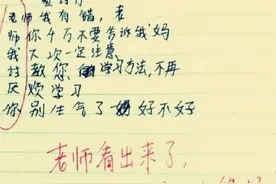 老师我有错，老
师你千万不要告诉我妈
我下次一定注意
讨教您学习方法，不再
厌烦学习
你别生气了 好不好
老师看出来了，